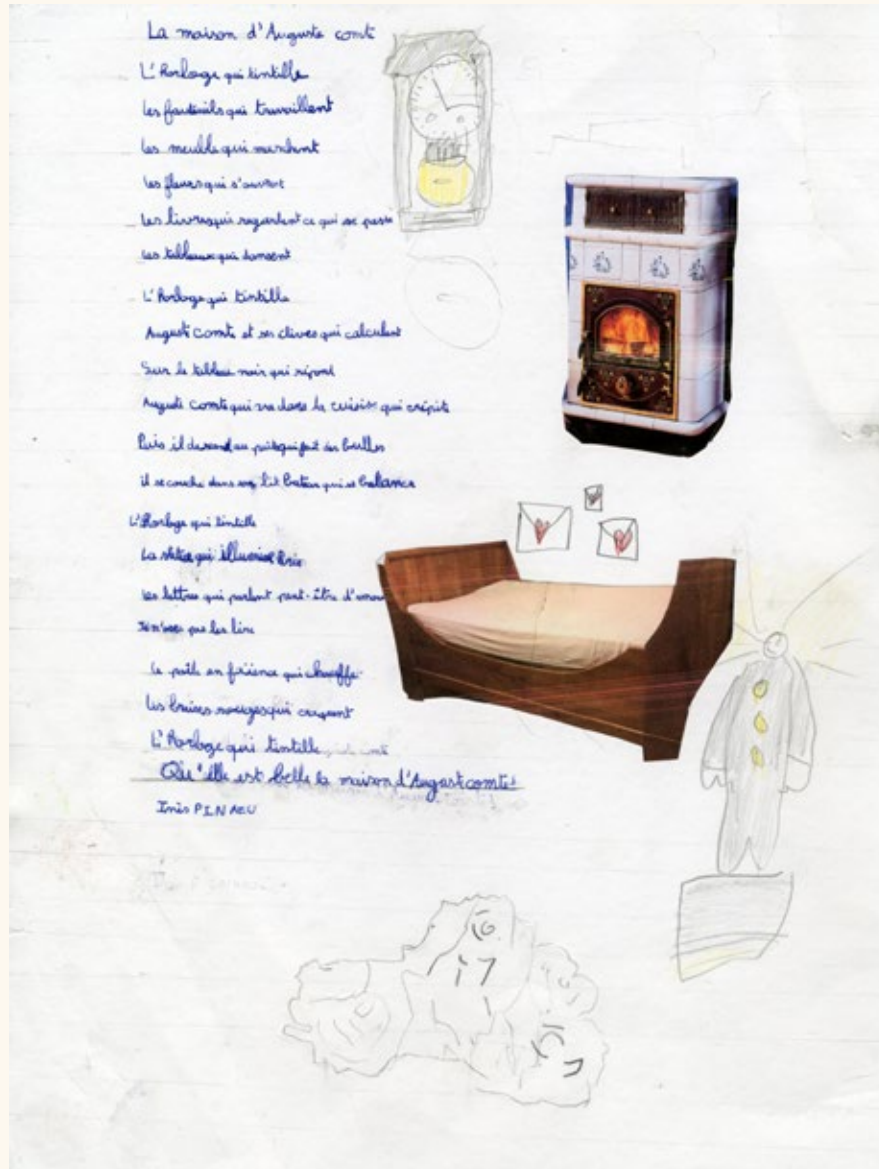 La maison d'Auguste comte
L'Horloge qui tintille
Les fauteuils qui travaillent
Les meuble qui marchent
Les fleurs qui s'ouvrent
Les livres qui regardent ce qui se passe
Les tableaux qui dansent
L'Horloge qui tintille
Auguste Comte et ses élèves qui calculent
Sur le tableau noir qui répond
Auguste Comte qui va dans la cuisine qui crépite
Puis il descend au puits qui fait des bulles
il se couche dans son lit bateau qui se balance
L'Horloge qui tintille
La qui illumine
Les lettres qui parlent peut-être d'amour
Je n'ose pas les lire
Le poële en faïence qui chauffe
Les braises rouges qui craquent
L'Horloge qui tintille
Qu'elle est belle la maison d'August comte!
Inès PINEAU